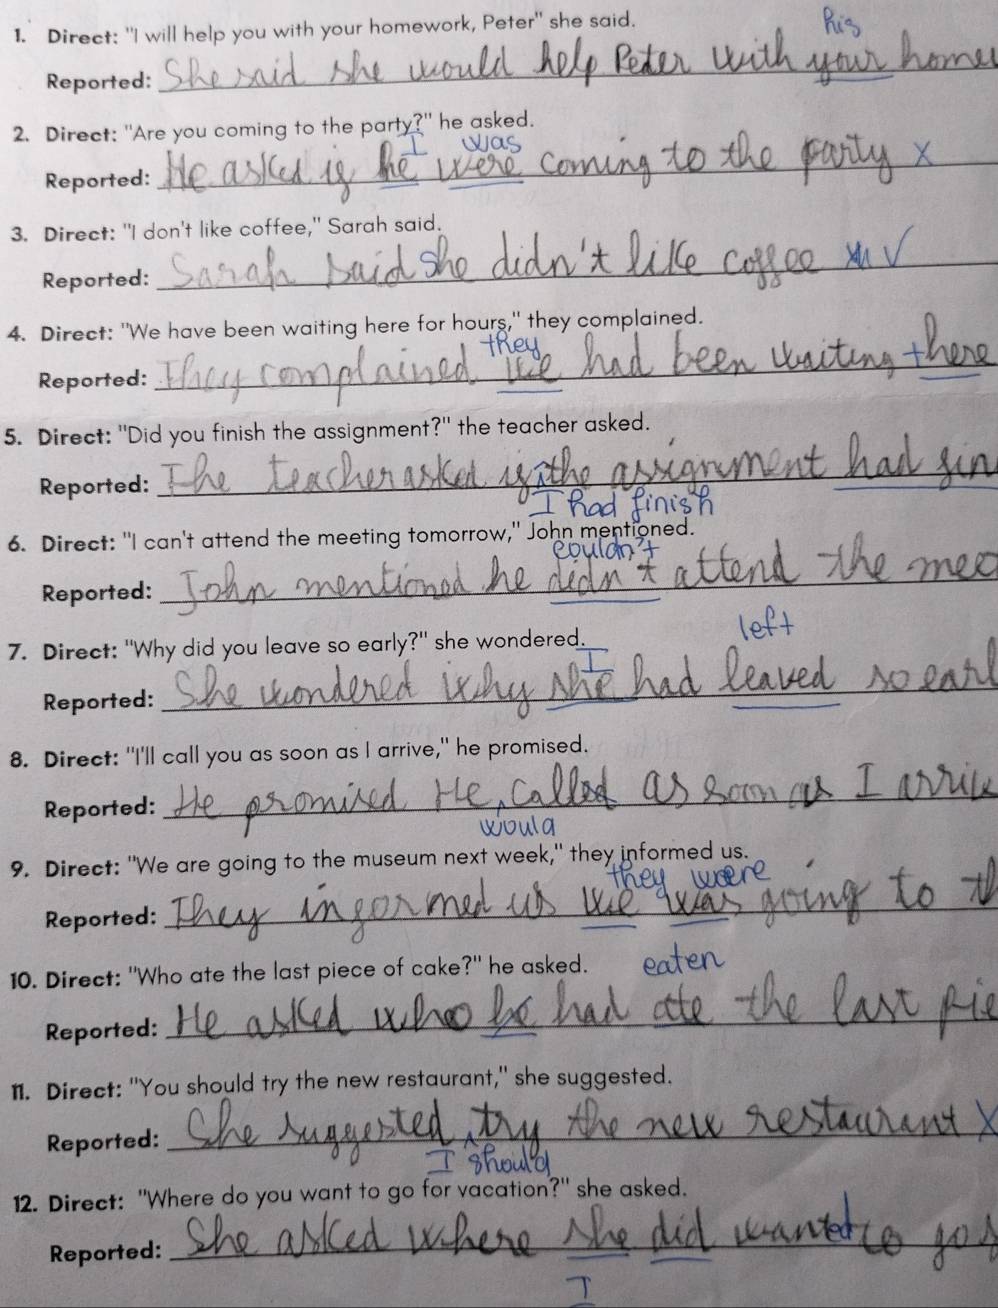 his
1. Direct: "I will help you with your homework, Peter" she said.
Reported: She said she would help Peter with your home
2. Direct: "Are you coming to the party?" he asked.
I was
Reported: He asked if he were coming to the party x
3. Direct: "I don't like coffee," Sarah said.
Reported: Sarah said she didn't like coffee √
4. Direct: "We have been waiting here for hours," they complained.
they
Reported: They complained we had been waiting there
5. Direct: "Did you finish the assignment?" the teacher asked.
Reported: The teacher asked if the assignment had fin
I had finish
6. Direct: "I can't attend the meeting tomorrow," John mentioned.
couldn't
Reported: John mentioned he didn't attend the mee
left
7. Direct: "Why did you leave so early?" she wondered.
I
Reported: She wondered why she had leaved so earl
8. Direct: "I'll call you as soon as I arrive," he promised.
Reported: He promised He called as soon as I arrive
would
9. Direct: "We are going to the museum next week," they informed us.
they were
Reported: They informed us we was going to th
10. Direct: "Who ate the last piece of cake?" he asked.
eaten
Reported: He asked who he had ate the last pie
11. Direct: "You should try the new restaurant," she suggested.
Reported: She suggested try the new restaurant X
I should
12. Direct: "Where do you want to go for vacation?" she asked.
Reported: She asked where she did wanted to go
I